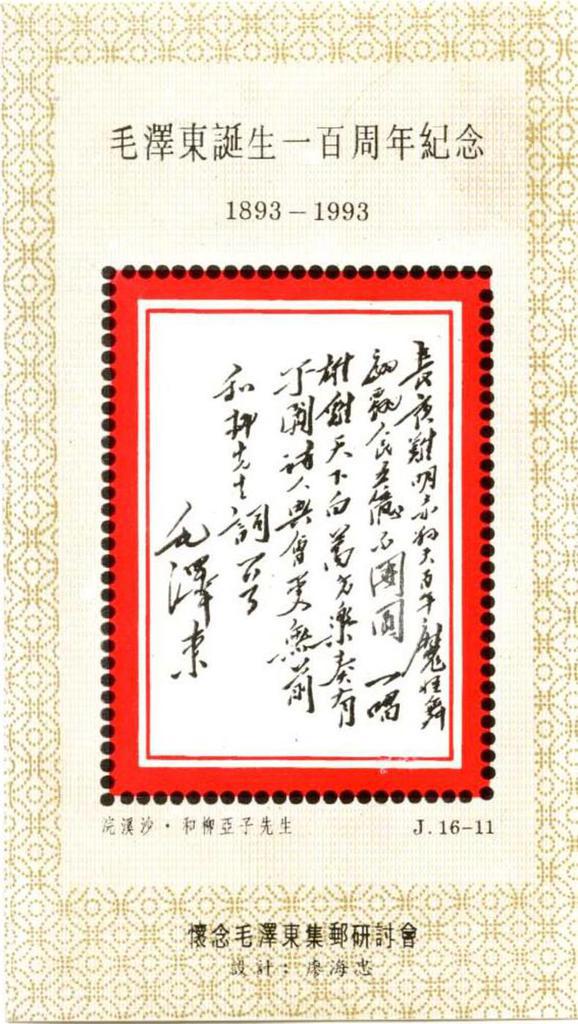 毛澤東誕生一百周年紀念
1893－1993
長夜難明赤狗天百年魔怪舞
翩翩人民五億不團圓 一唱
雄雞天下白萬方樂奏有
于闐詩人興會更無前
和柳先生詞一首
毛澤東
浣溪沙·和柳亞子先生
J.16-11
懷念毛澤東集郵研討會
設計：廖海忠